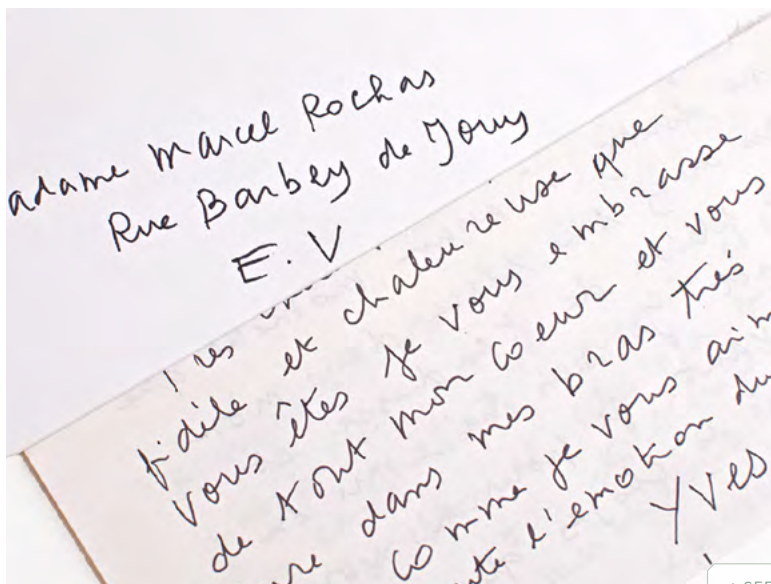 adame Marcel Rochas
Rue Barbey de Jouy
E.V
fidèle et chaleureuse que
vous êtes je vous embrasse
de tout mon coeur et vous
dans mes bras très
comme je vous aim
l'émotion du
Yves